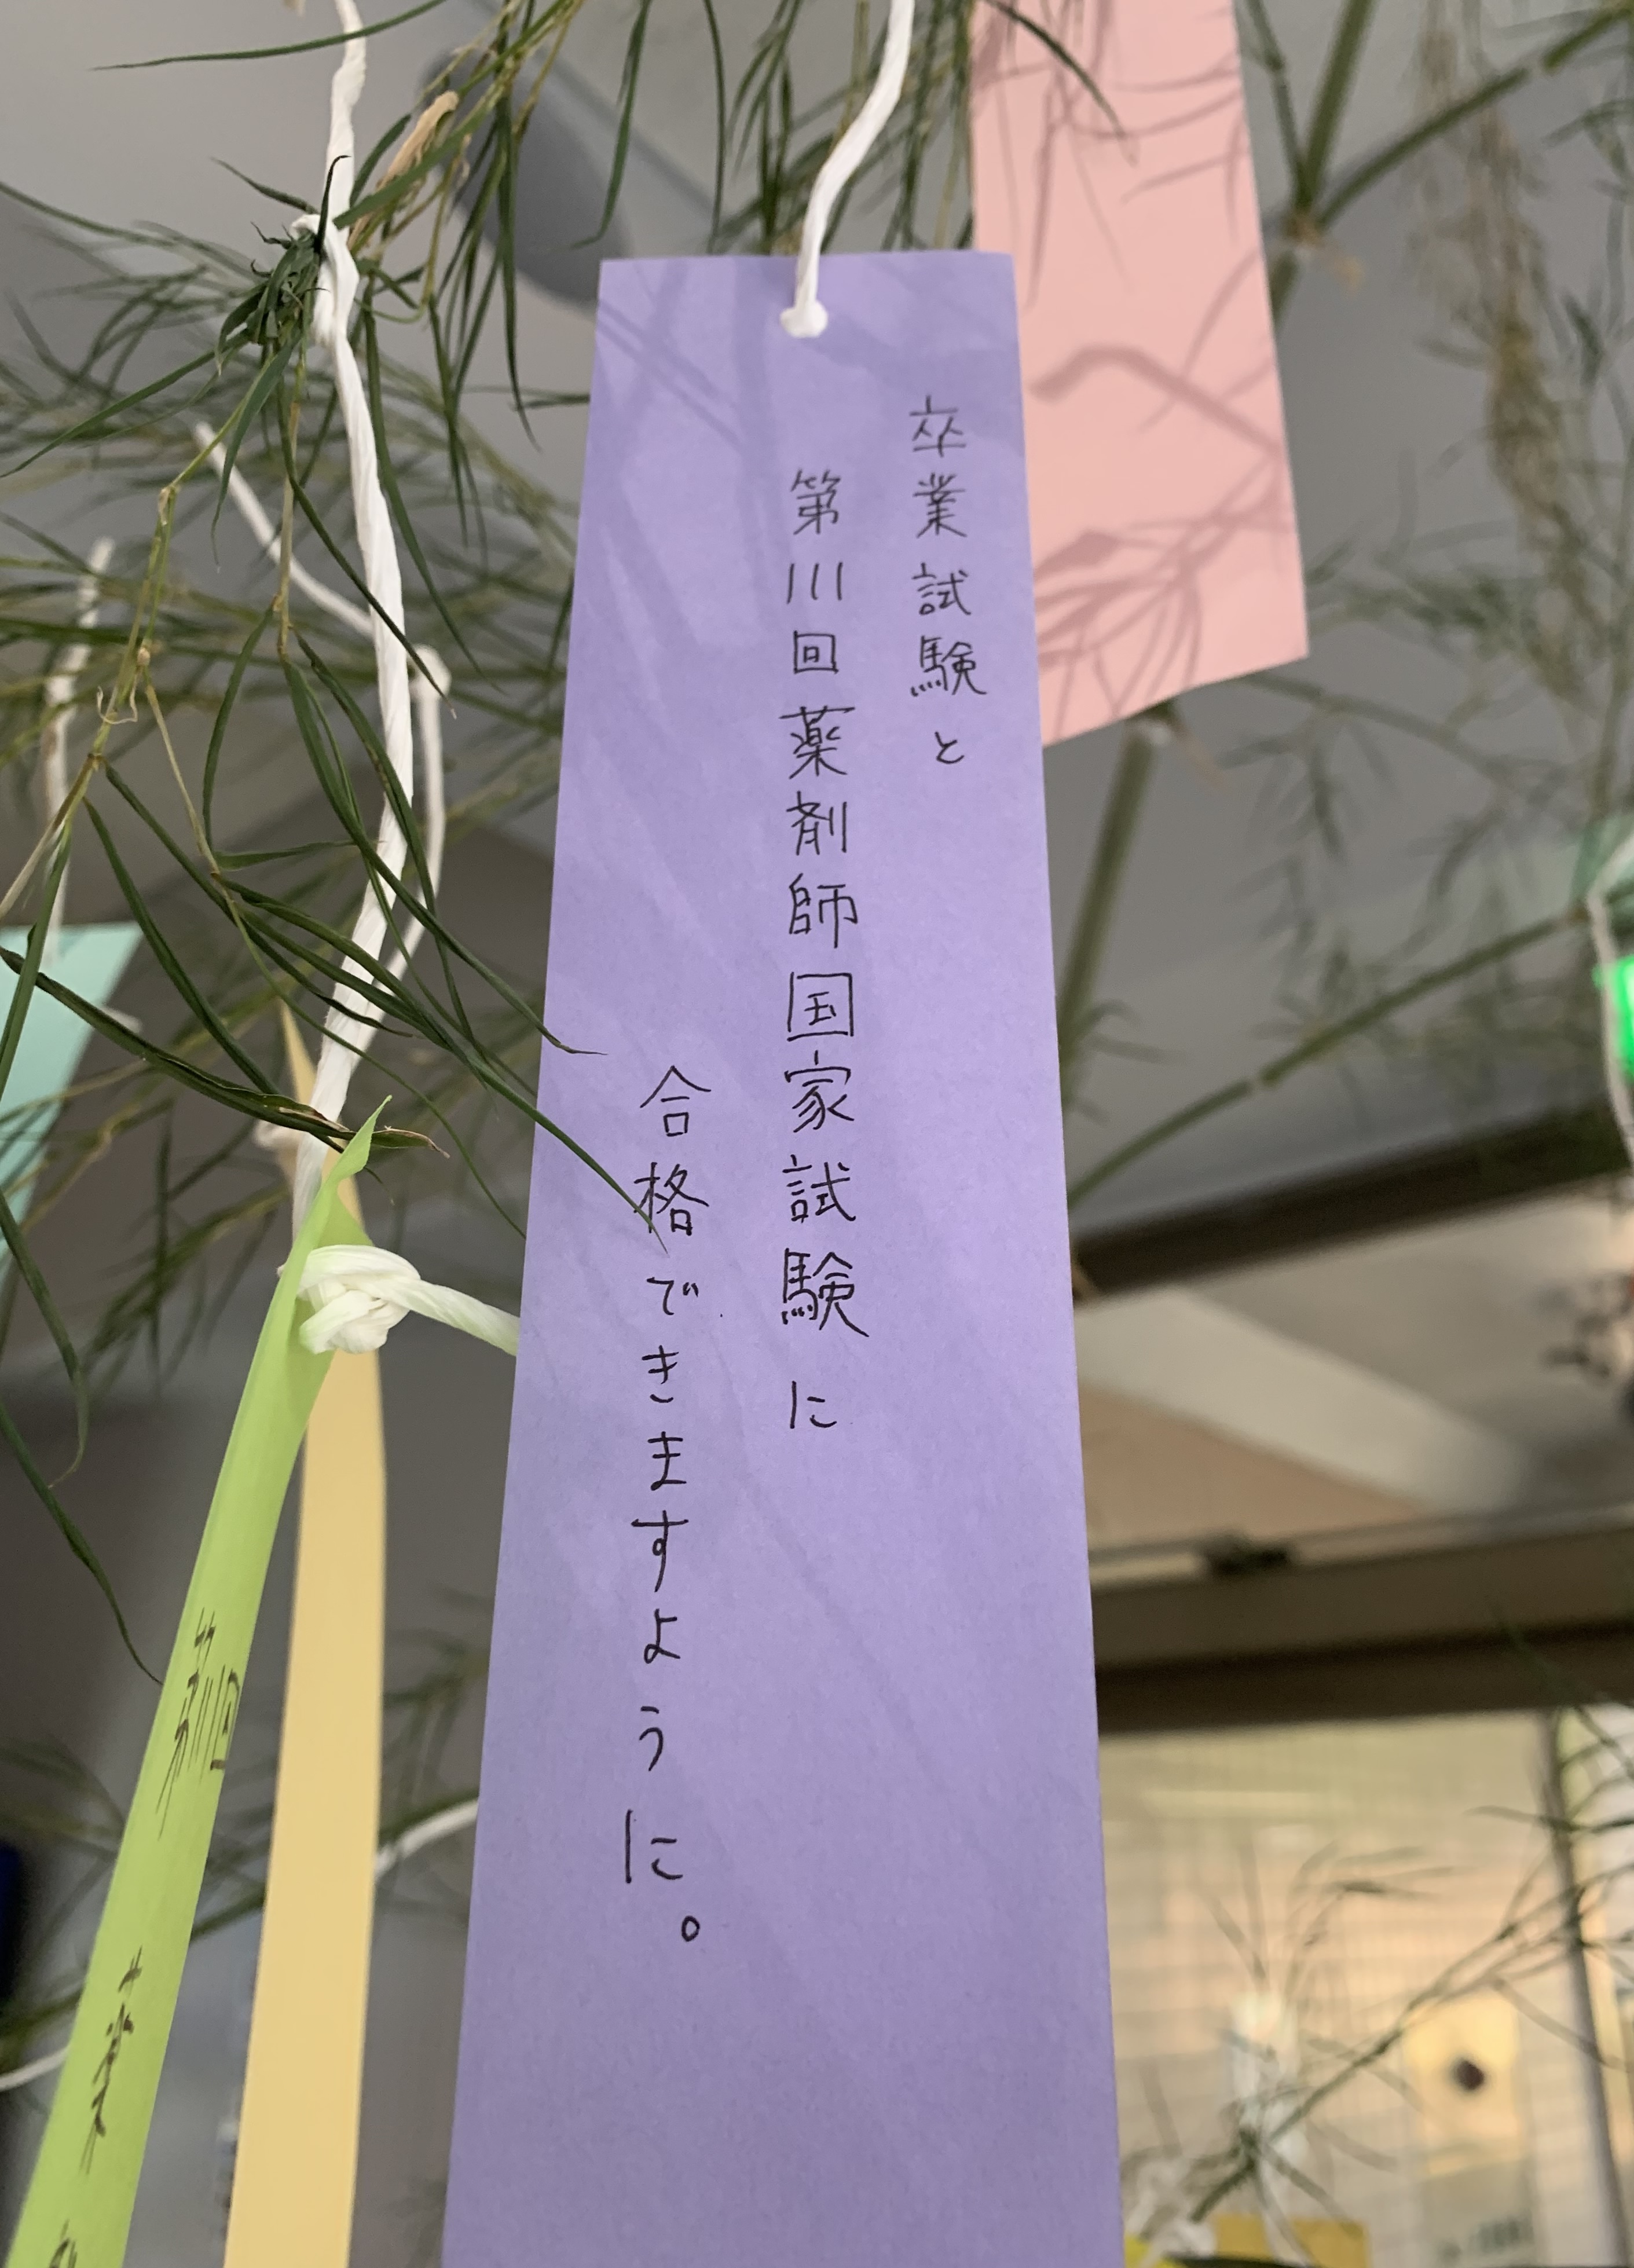 卒業試験と
第111回薬剤師国家試験に
合格できますように。
第111回
薬